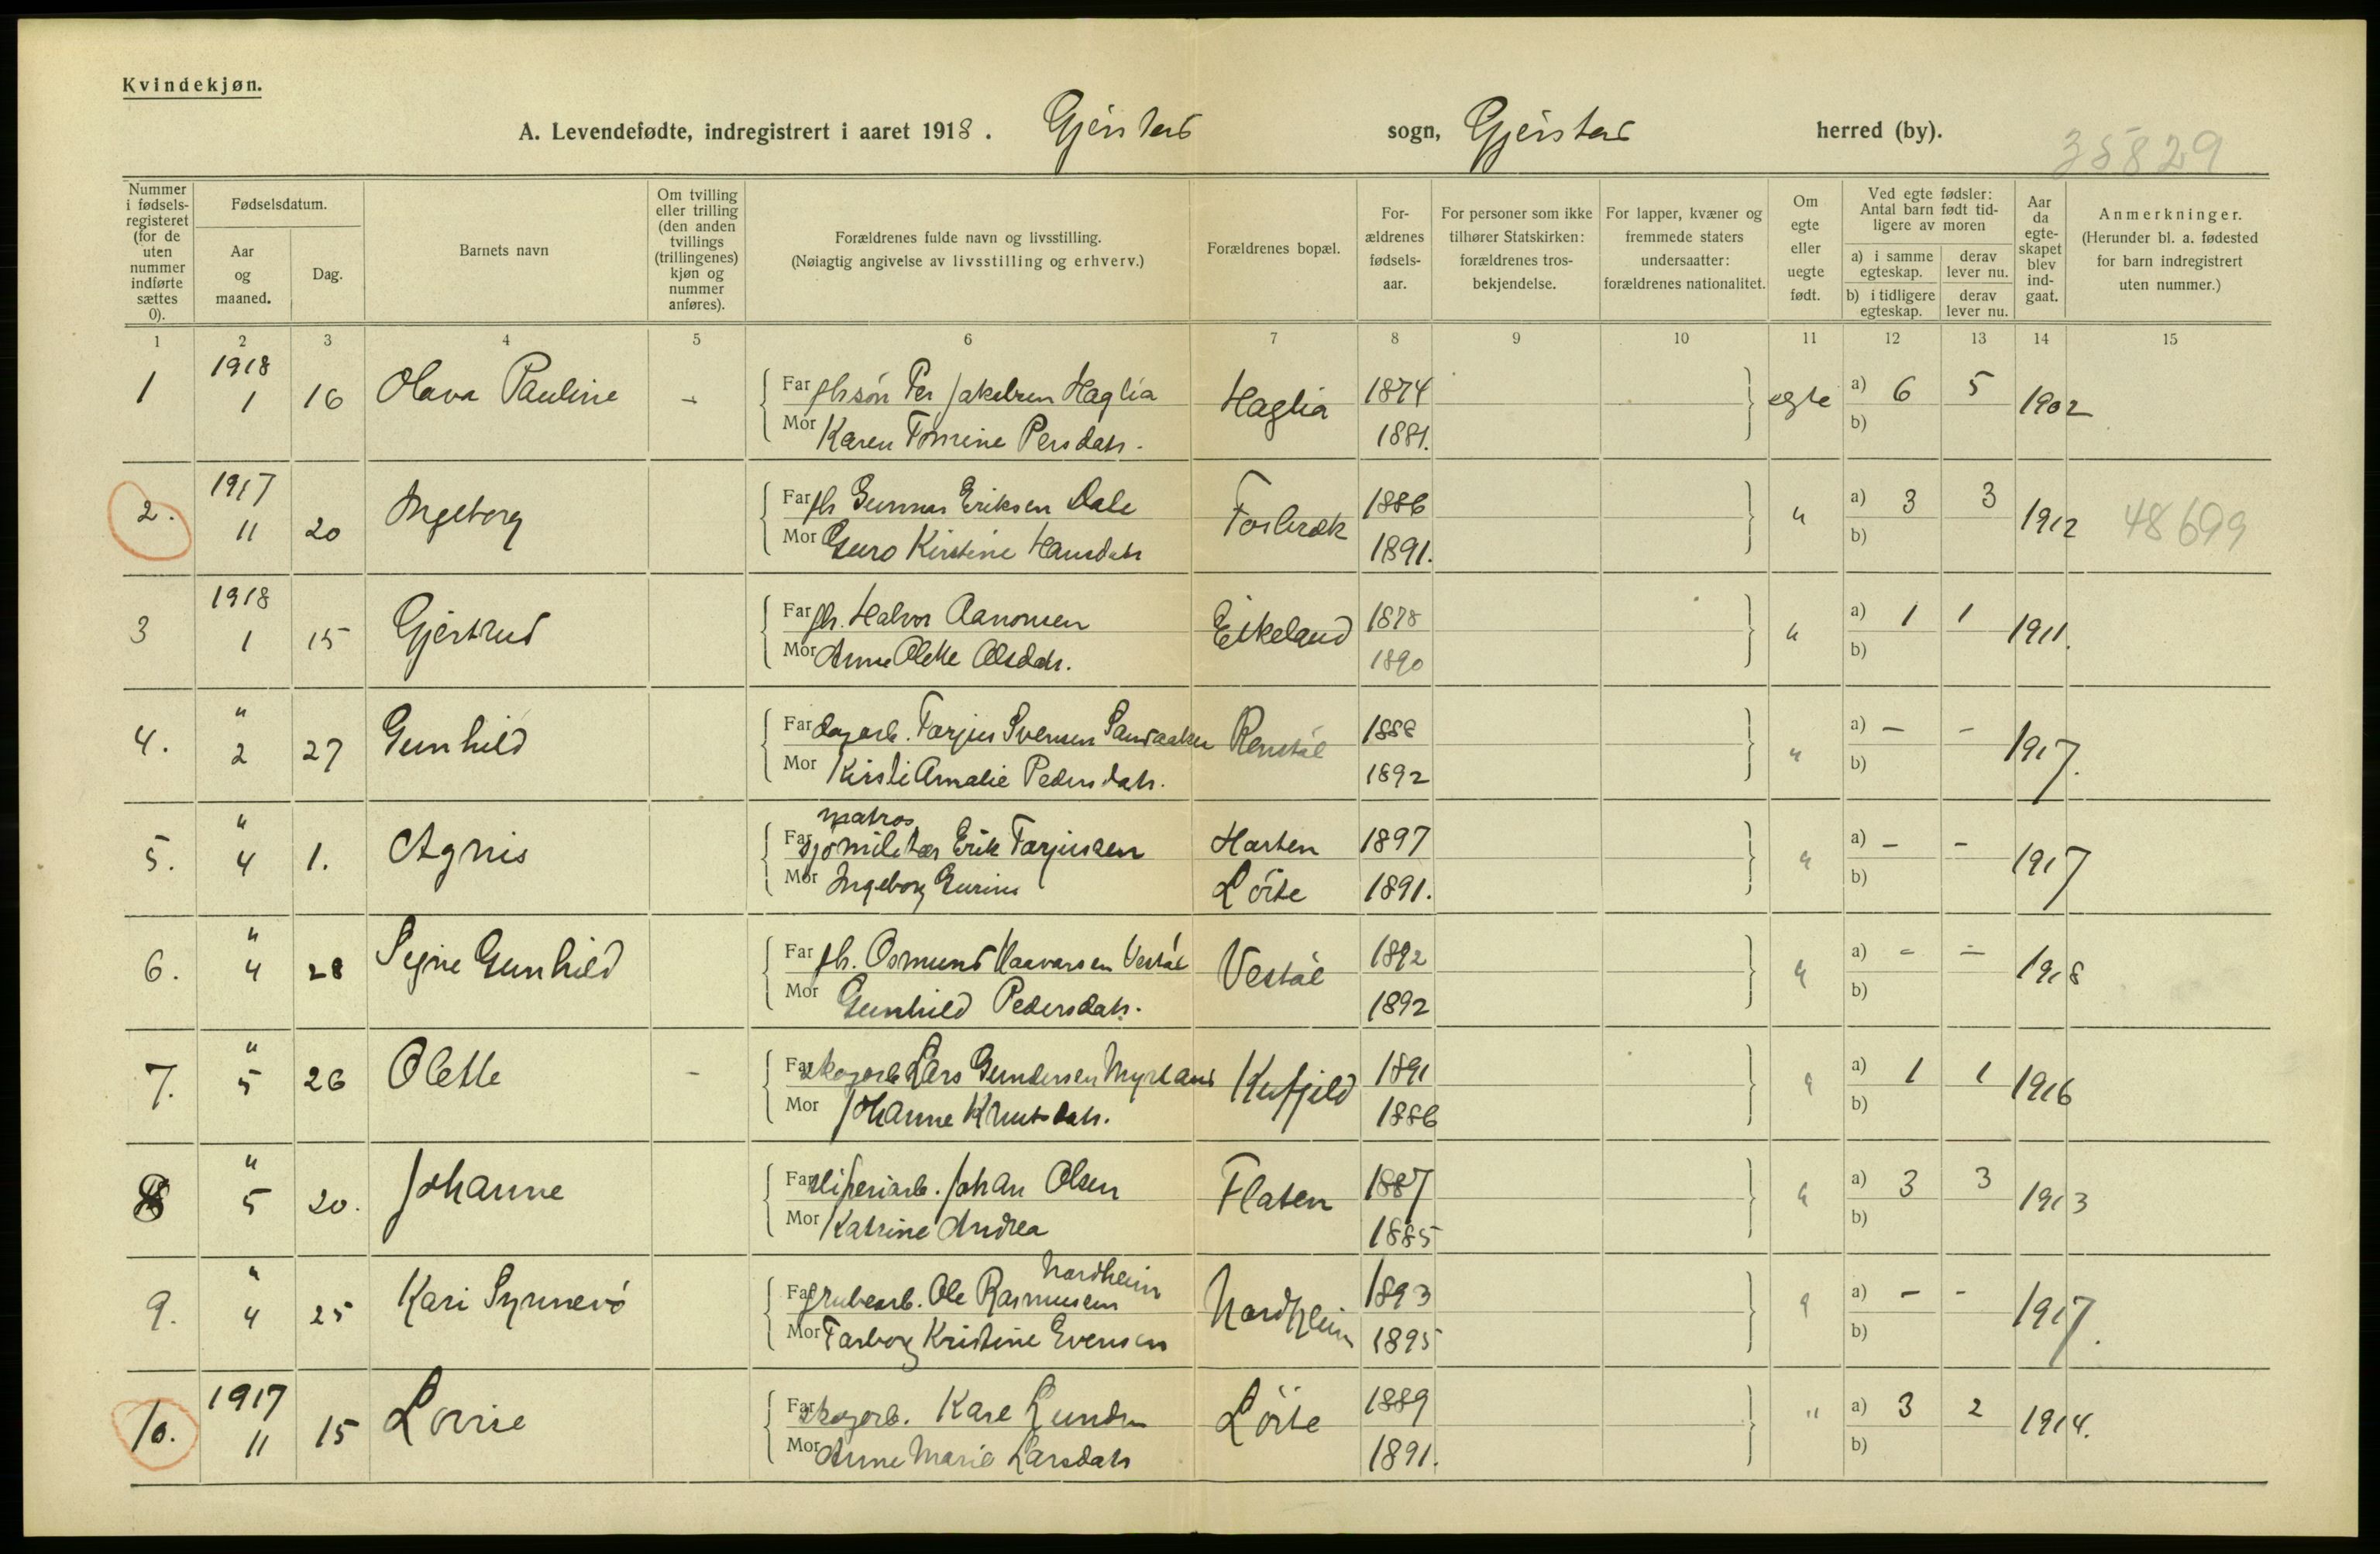 Kvindekjøn.
A. Levendefødte, indregistrert i aaret 1918. Gjerstad sogn, Gjerstad herred (by).
35829
Nummer i fødsels-registeret (for de uten nummer indførte sættes 0).
Fødselsdatum.
Aar og maaned.
Dag.
Barnets navn
Om tvilling eller trilling (den anden tvillings (trillingenes) kjøn og nummer anføres).
Forældrenes fulde navn og livsstilling.
(Nøiagtig angivelse av livsstilling og erhverv.)
Forældrenes bopæl.
For-ældrenes fødsels-aar.
For personer som ikke tilhører Statskirken: forældrenes tros-bekjendelse.
For lapper, kvæner og fremmede staters undersaatter: forældrenes nationalitet.
Om egte eller uegte født.
Ved egte fødsler: Antal barn født tid-ligere av moren
a) i samme egteskap.
derav lever nu.
b) i tidligere egteskap.
derav lever nu.
Aar da egte-skapet blev ind-gaat.
Anmerkninger.
(Herunder bl. a. fødested for barn indregistrert uten nummer.)
1 2 3 4 5 6 7 8 9 10 11 12 13 14 15
1918
1 1 16 Olava Pauline - Far Per Jakobsen Haglia Haglia 1874 egte a) 6 5 1902
Mor Karen Tomine Persdatr. 1881. b)
1917
2. 11 20 Ingeborg Far fh Gunnar Eriksen Dale Fosbræk 1886 " a) 3 3 1912 48699
Mor Guro Kirstine Hansdatr 1891. b)
1918
3 1 15 Gjertrud Far fh. Halvor Aanonsen Eikeland 1878 " a) 1 1 1911.
Mor Anne Olette Olsdatr. 1890 b)
"
4. 2 27 Gunhild Far dagarb. Tarjus Svensen Sandaaker Renstøl 1888 " a) - - 1917.
Mor Kirsti Amalie Pedersdatr. 1892 b)
" matros
5. 4 1. Agnis Far sjømilitær Erik Tarjussen Hasten 1897 " a) - - 1917
Mor Ingeborg Løite 1891. b)
"
6. 4 28 Signe Gunhild Far fh. Osmund Haavorsen Vestøl Vestøl 1892 " a) - - 1918
Mor Gunhild Pedersdatr. 1892 b)
"
7. 5 26 Olette - Far skogarb Lars Gundersen Myrland 1891 " a) 1 1 1916
Mor Johanne Knutsdatr. 1886 b)
"
8 5 20. Johanne Far sliperiarb. Johan Olsen Flaten 1887 " a) 3 3 1913
Mor Katrine Andrea 1885 b)
" Nordheim
9. 4 25 Kari Synnevö Far grubearb. Ole Rasmussen Nordheim 1893 " a) - - 1917.
Mor Tarborg Kristine Evensen 1895 b)
1917
10. 11 15 Lovise Far skogarb. Kare Lunden Löite 1889 " a) 3 2 1914.
Mor Anne Marie Larsdatr 1891. b)